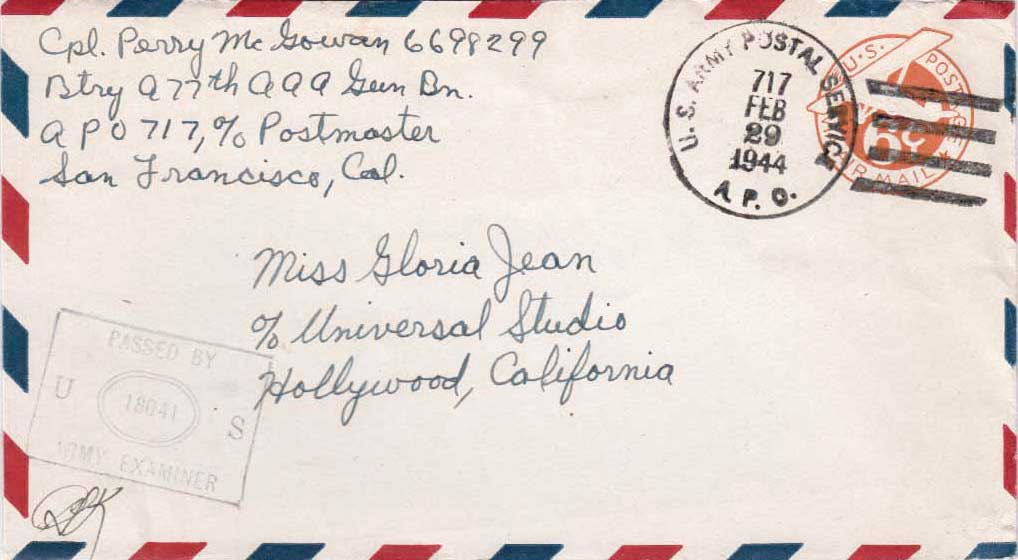 Cpl. Perry McGowan 6698299
Btry A 77th AAA Gun Bn.
APO 717, c/o Postmaster
San Francisco, Cal.
U.S. ARMY POSTAL SERVICE
717
FEB
29
1944
A.P.O.
U.S. POSTAGE
6¢
AIR MAIL
Miss Gloria Jean
c/o Universal Studio
Hollywood, California
PASSED BY
U 18041 S
ARMY EXAMINER